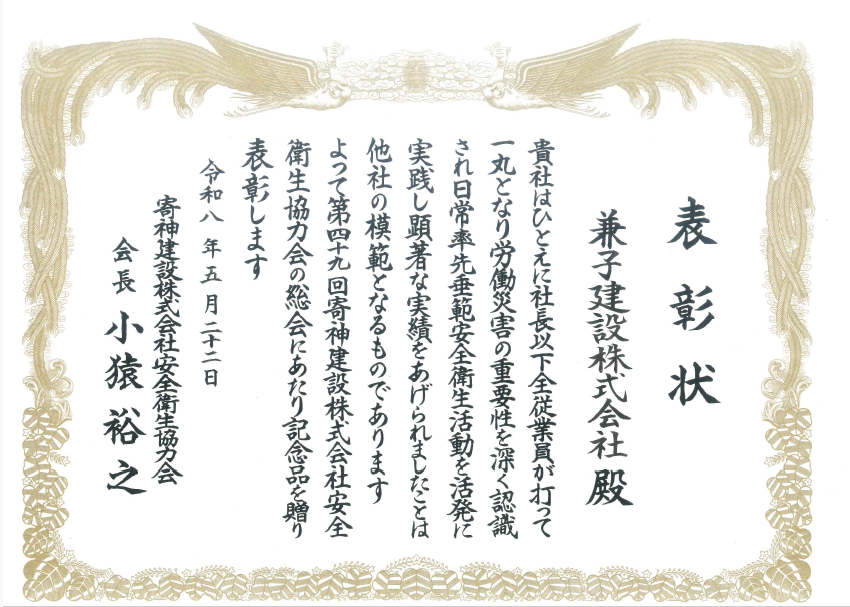 表彰状
兼子建設株式会社 殿
貴社はひとえに社長以下全従業員が打って
一丸となり労働災害の重要性を深く認識
され日常率先垂範安全衛生活動を活発に
実践し顕著な実績をあげられましたことは
他社の模範となるものであります
よって第四十九回寄神建設株式会社安全
衛生協力会の総会にあたり記念品を贈り
表彰します
令和八年五月二十二日
寄神建設株式会社安全衛生協力会
会長 小猿裕之